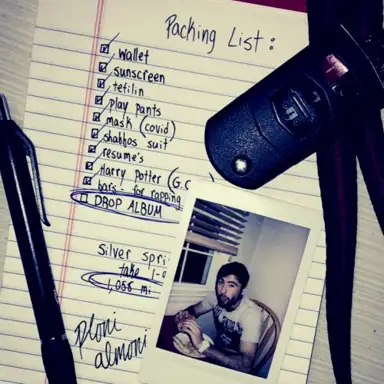 Packing List:
wallet
sunscreen
tefilin
play pants
mask (covid)
shabbos suit
resume's
Harry Potter (G.C
bars - for rapping
DROP ALBUM
Silver spri
take 1-
1,056 mi
Ploni
almoni